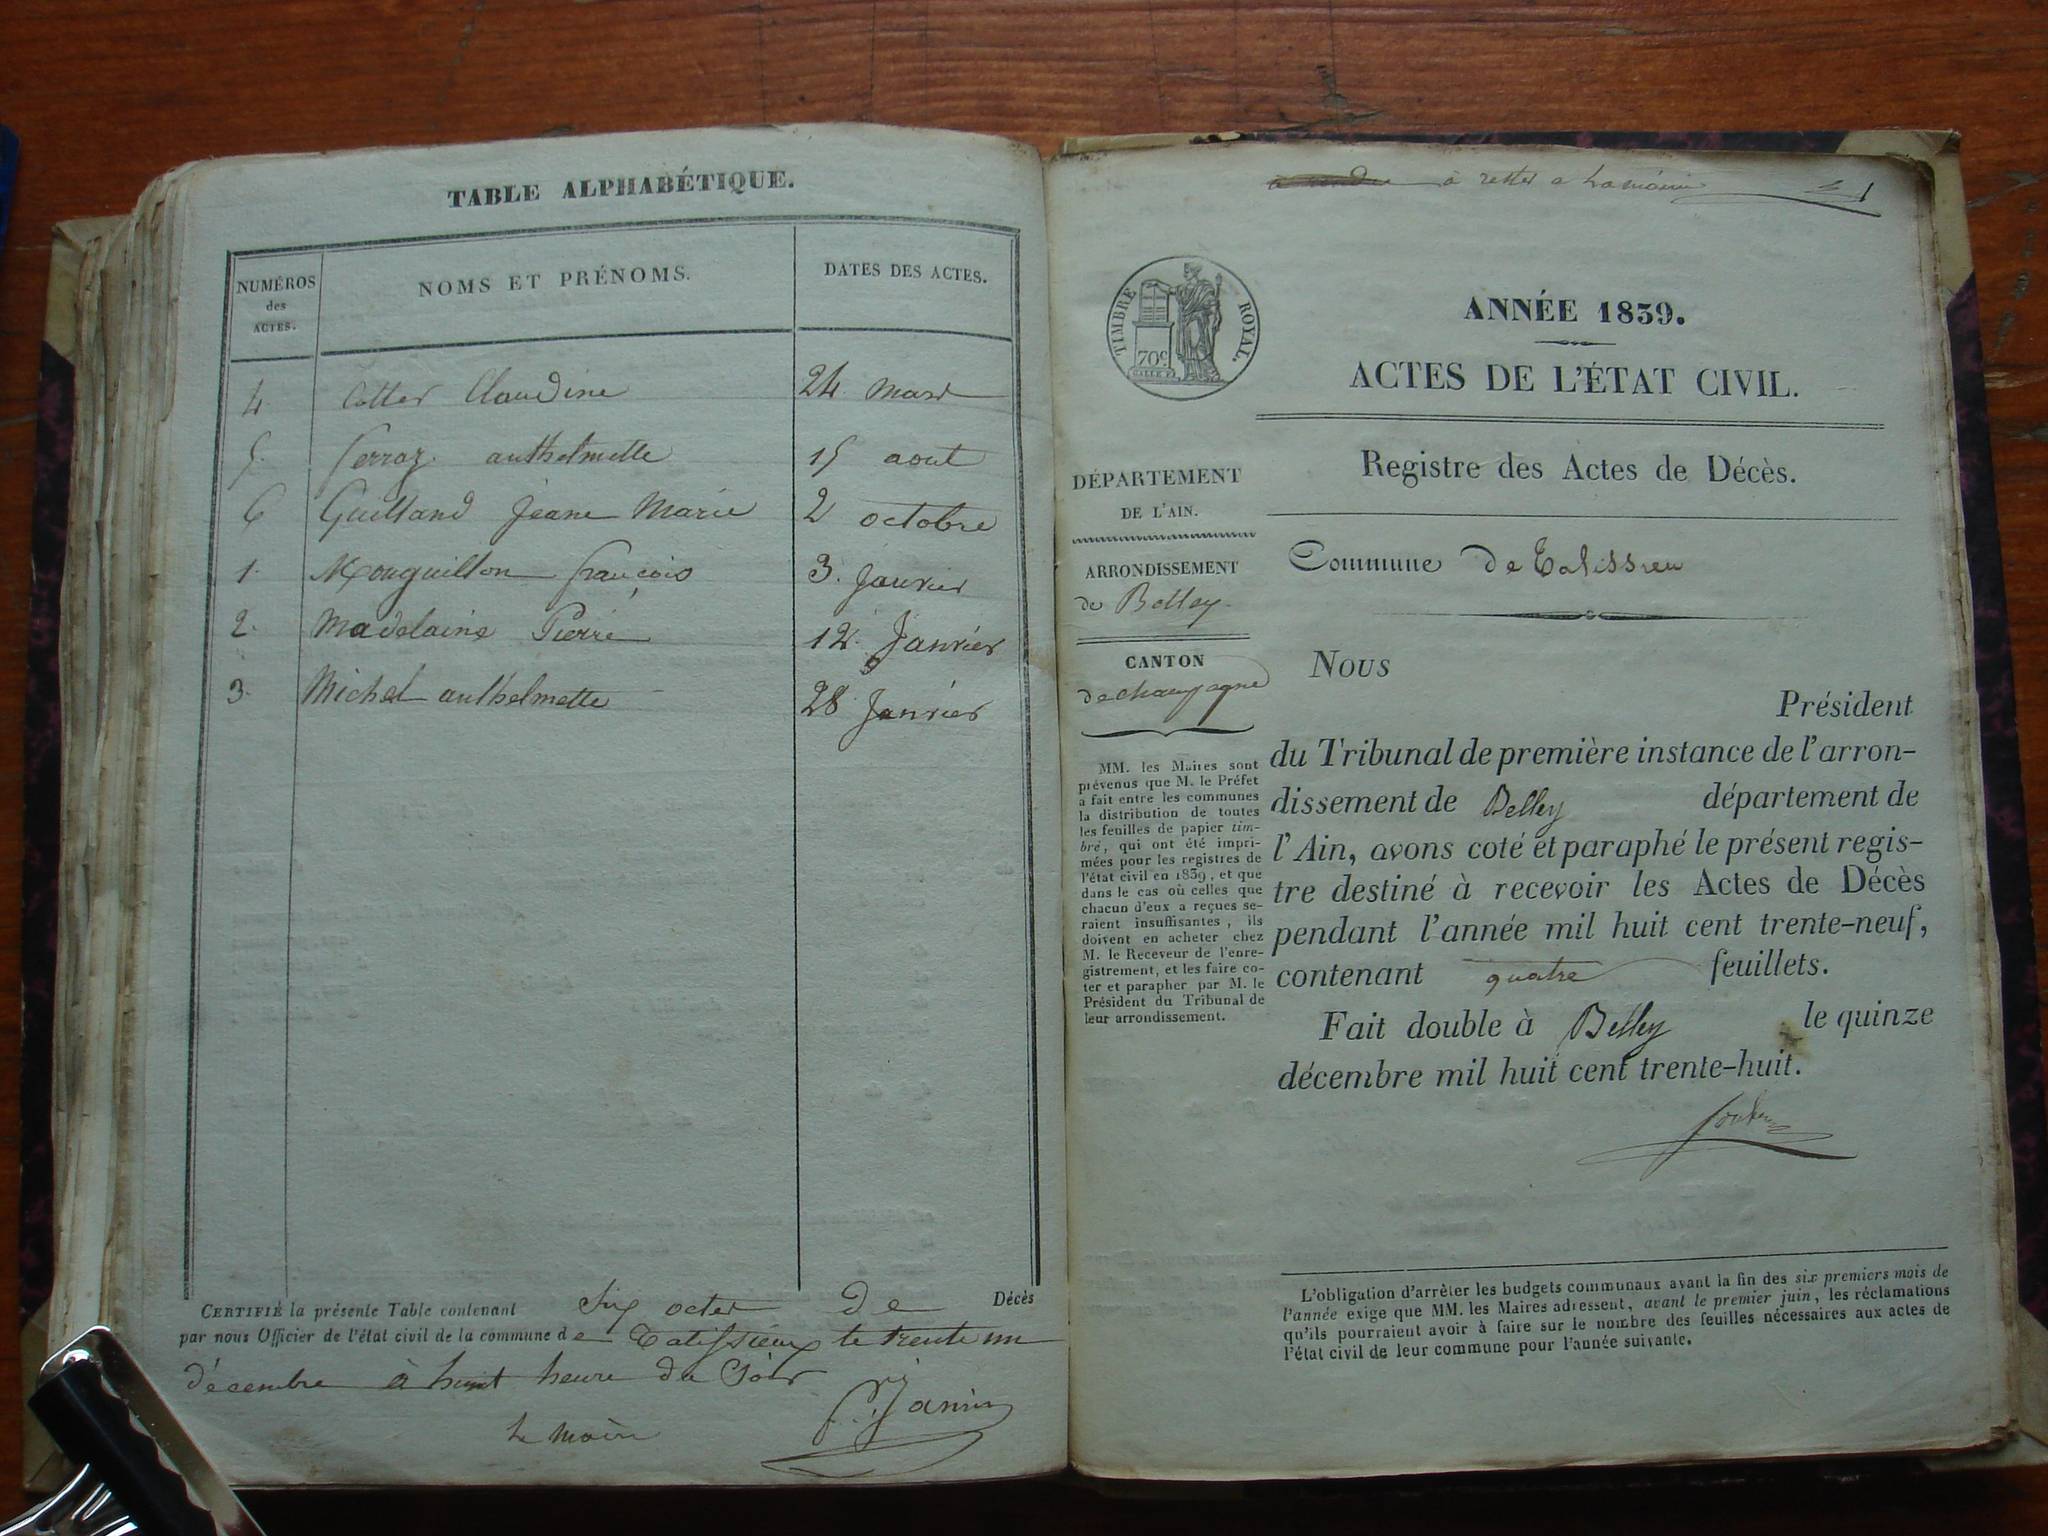 TABLE ALPHABÉTIQUE.
NUMÉROS
des
ACTES.
NOMS ET PRÉNOMS.
DATES DES ACTES.
4. Cotter Claudine 24 mars
5. ferraz anthelmette 15 aout
6 Guilland Jeane Marie 2 octobre
1. Monguillon françois 3. Janvier
2. Madelaine Pierre 12 Janvier
3. Michel anthelmette 28 Janvier
CERTIFIÉ la présente Table contenant Six octes de Décès
par nous Officier de l'état civil de la commune de Talissieux le trente un
décembre à huit heure du Soir
Le maire
Janin
à rester a la mairie 1
TIMBRE ROYAL.
70c.
ANNÉE 1839.
ACTES DE L'ÉTAT CIVIL.
Registre des Actes de Décès.
Commune de Talissieu
DÉPARTEMENT
DE L'AIN.
ARRONDISSEMENT
de Belley.
CANTON
de champagne
MM. les Maires sont
prévenus que M. le Préfet
a fait entre les communes
la distribution de toutes
les feuilles de papier tim-
bré, qui ont été impri-
mées pour les registres de
l'état civil en 1839, et que
dans le cas où celles que
chacun d'eux a reçues se-
raient insuffisantes, ils
doivent en acheter chez
M. le Receveur de l'enre-
gistrement, et les faire co-
ter et parapher par M. le
Président du Tribunal de
leur arrondissement.
Nous
Président
du Tribunal de première instance de l'arron-
dissement de Belley département de
l'Ain, avons coté et paraphé le présent regis-
tre destiné à recevoir les Actes de Décès
pendant l'année mil huit cent trente-neuf,
contenant quatre feuillets.
Fait double à Belley le quinze
décembre mil huit cent trente-huit.
L'obligation d'arrêter les budgets communaux avant la fin des six premiers mois de
l'année exige que MM. les Maires adressent, avant le premier juin, les réclamations
qu'ils pourraient avoir à faire sur le nombre des feuilles nécessaires aux actes de
l'état civil de leur commune pour l'année suivante.